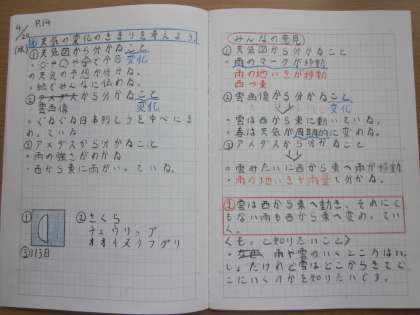 4/20
P.14
天気の変化のきまりを考えよう
①天気図から分かること
変化
の天気の予想が分かる。
・絵でみんなに伝わる。
②から分かること
雲画像
変化
きていね。
③アメダスから分かること
・雨の強さがわかる
・西から東に雨がいっている。
①
②さくら
チューリップ
オオイヌノフグリ
③113日
(みんなの意見)
①天気図から分かること
・雨のマークが移動
・雨の地いきが移動
西→東
②雲画像から分かること
変化
・雲は西から東に動いている。
・春は天気が周期的に変わる。
③アメダスから分かること
・雲みたいに西から東へ雨が移動
・雨の地いきや雨量も分かる。
雲は西から東へ動き、それにと
もない雨も西から東へ変わってい
く。
も。と知りたいこと>
雨や雲のいくところはい
しょだけれど雲はどこからきてど
こにいくのかを知りたいです。